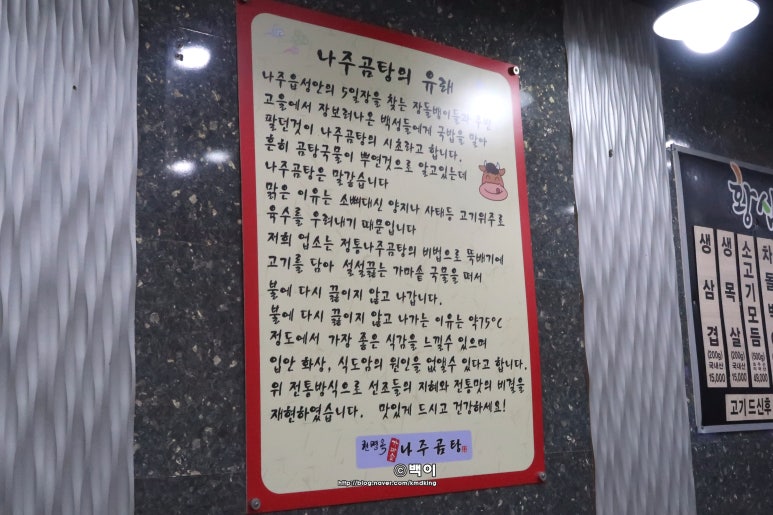 나주곰탕의 유래
나주읍성안의 5일장을 찾는 장돌뱅이들과
고을에서 장보러나온 백성들에게 국밥을 말아
팔던것이 나주곰탕의 시초라고 합니다.
흔히 곰탕국물이 뿌연것으로 알고있는데
나주곰탕은 말갛습니다
맑은 이유는 소뼈대신 양지나 사태등 고기위주로
육수를 우려내기 때문입니다
저희 업소는 정통나주곰탕의 비법으로 뚝배기에
고기를 담아 설설끓는 가마솥 국물을 떠서
불에 다시 끓이지 않고 나갑니다.
불에 다시 끓이지 않고 나가는 이유는 약75°C
정도에서 가장 좋은 식감을 느낄수 있으며
입안 화상, 식도암의 원인을 없앨수 있다고 합니다.
위 전통방식으로 선조들의 지혜와 전통맛의 비결을
재현하였습니다. 맛있게 드시고 건강하세요!
나주곰탕
ⓒ백이
http://blog.naver.com/kmdking
황
생삼겹 (200g) 국내산 15,000
생목살 (200g) 국내산 15,000
소고기모듬 (500g) 45,000
차돌
고기드신후